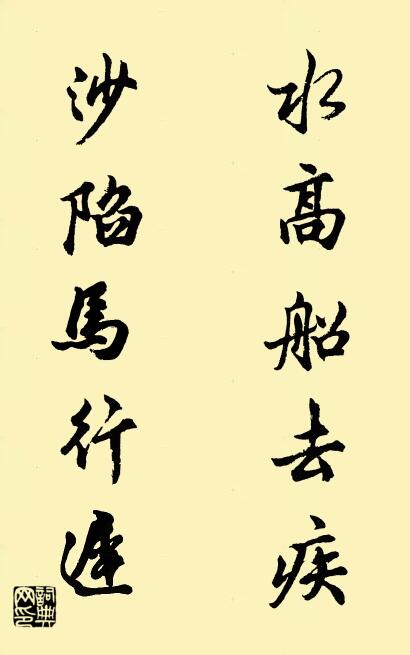 水高船去疾
沙陷馬行遲
詞典網印